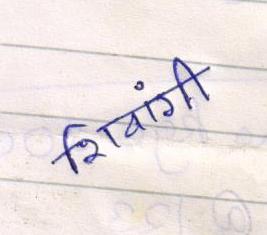 शिवांगी